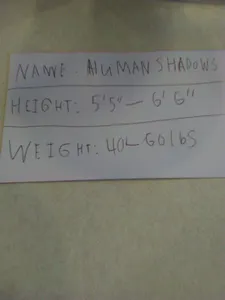 NAME: HUMAN SHADOWS
HEIGHT: 5'5" — 6'6"
WEIGHT: 40— 60lbs